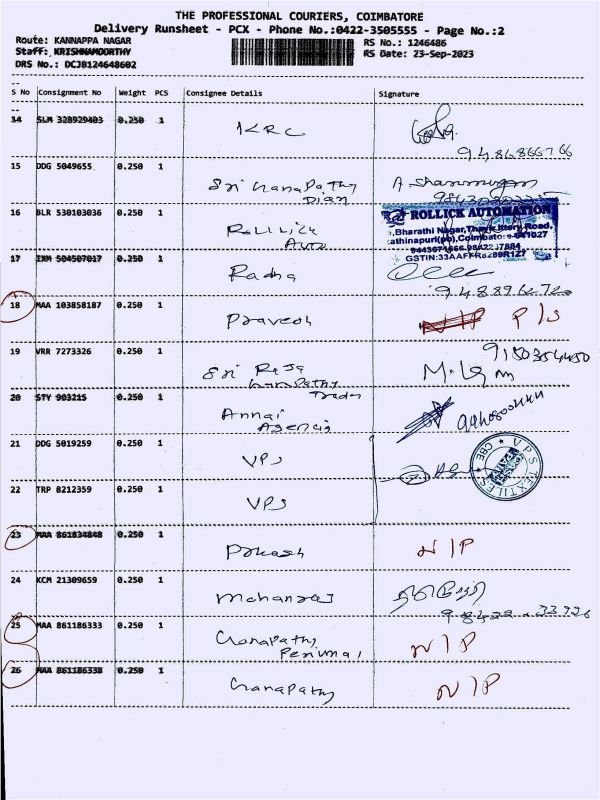 THE PROFESSIONAL COURIERS, COIMBATORE
Delivery Runsheet - PCX - Phone No.:0422-3505555 - Page No.:2
Route: KANNAPPA NAGAR
RS No.: 1246486
Staff: KRISHNAMOORTHY
RS Date: 23-Sep-2023
DRS No.: DCJB124648602
S No Consignment No Weight PCS Consignee Details Signature
14 SLM 328929403 0.250 1 KRC
15 DDG 5049655 0.250 1 Sri Ganapathy
A Shanmugam
16 BLR 530103036 0.250 1 Rollick
Auto
ROLLICK AUTOMATION
Bharathi Nagar,
Road,
9443671666
17 IXM 504507017 0.250 1 Radha
18 MAA 103858187 0.250 1 Pravesh N/P P/S
19 VRR 7273326 0.250 1 Sri Raja
Ganapathy
Trader
9150354450
20 STY 903215 0.250 1 Annai
Agencies
21 DDG 5019259 0.250 1 VPS
VPS TEXTILES CBE
22 TRP 8212359 0.250 1 VPS
23 MAA 861834848 0.250 1 Prakash N/P
24 KCM 21309659 0.250 1 Mohanraj
25 MAA 861186333 0.250 1 Ganapathy
Perumal N/P
26 MAA 861186338 0.250 1 Ganapathy N/P